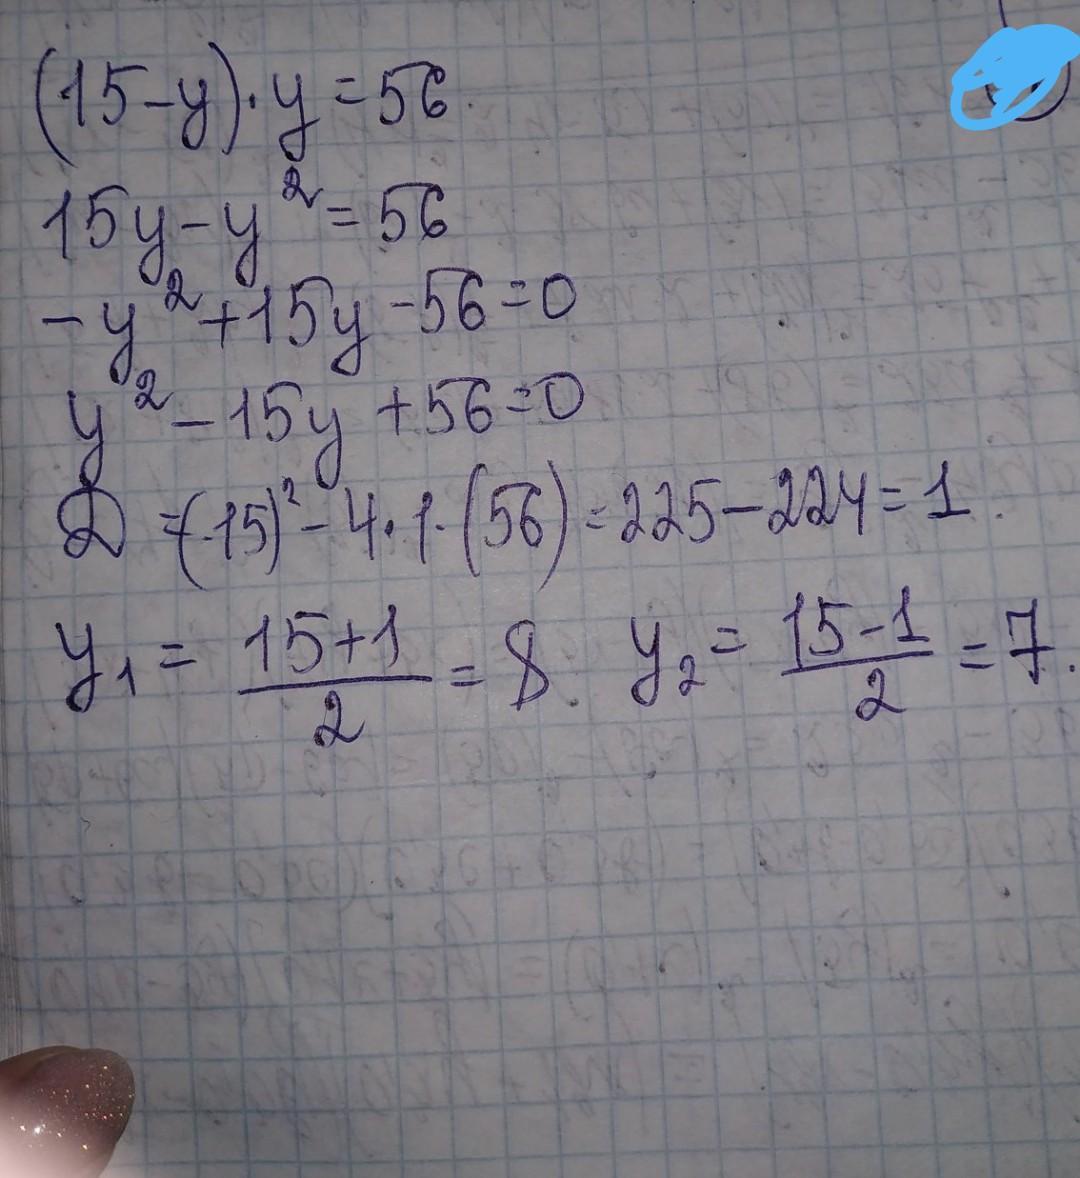 (15-y)·y=56.
15y-y²=56
-y²+15y-56=0
y²-15y+56=0
D=(-15)²-4·1·(56)=225-224=1.
y₁=(15+1)/2=8. y₂=(15-1)/2=7.